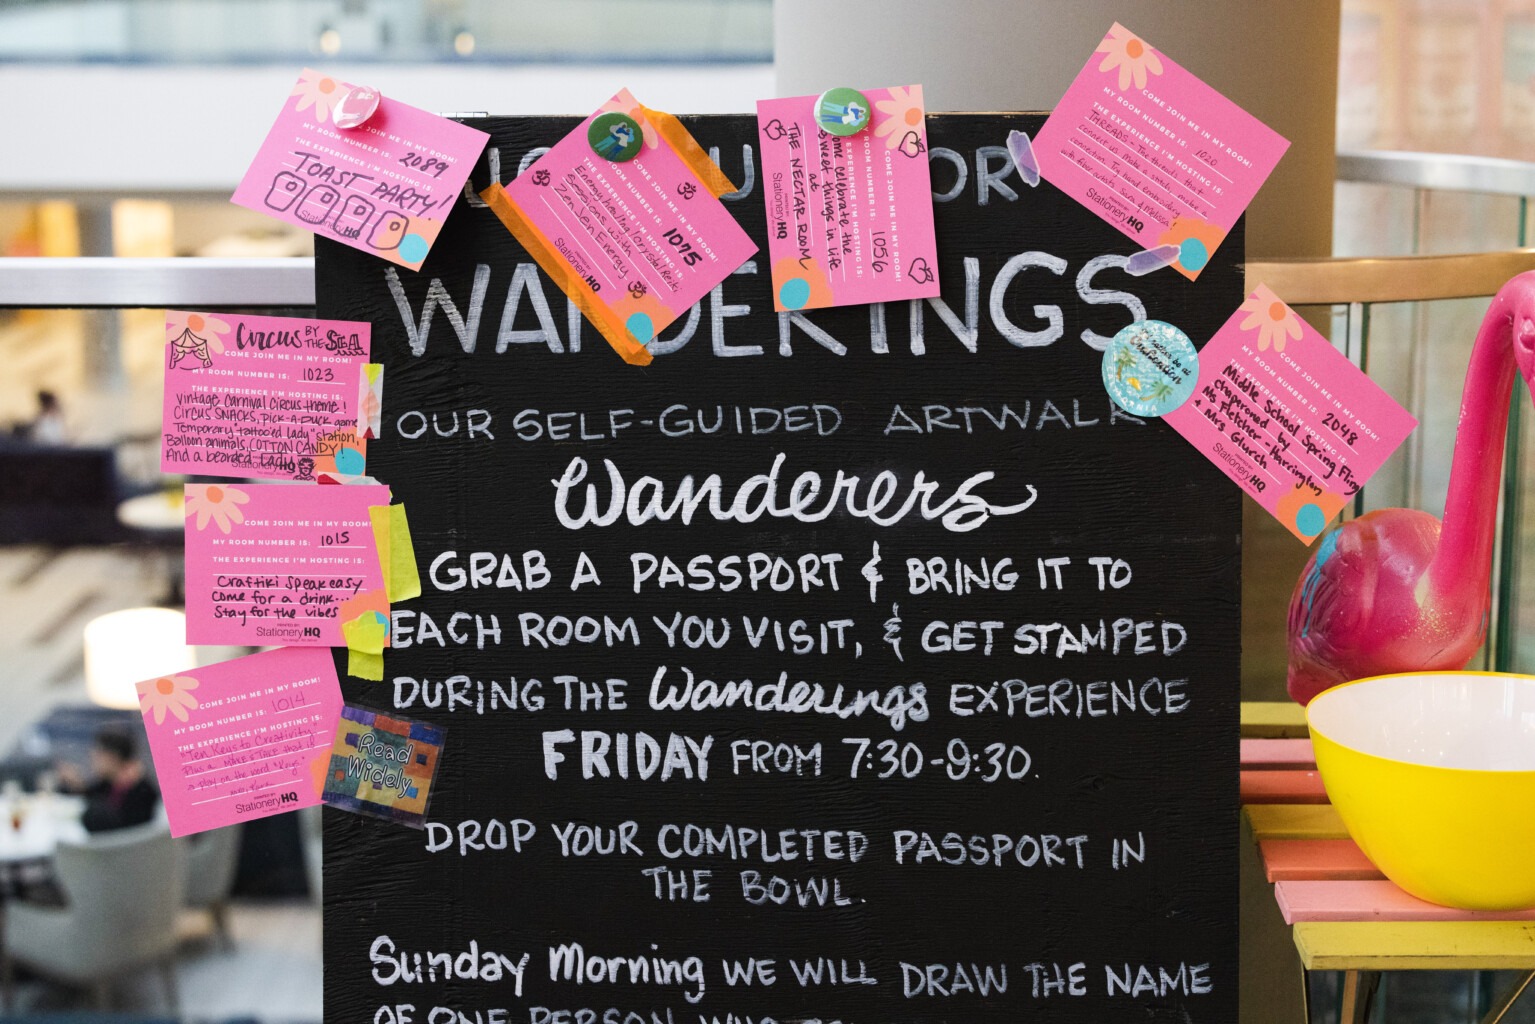 OR
WANDERINGS
OUR SELF-GUIDED ARTWALK
Wanderers
GRAB A PASSPORT & BRING IT TO
EACH ROOM YOU VISIT, & GET STAMPED
DURING THE Wanderings EXPERIENCE
FRIDAY FROM 7:30-9:30.
DROP YOUR COMPLETED PASSPORT IN
THE BOWL.
Sunday Morning WE WILL DRAW THE NAME
OF ONE PERSON
COME JOIN ME IN MY ROOM!
MY ROOM NUMBER IS: 2089
THE EXPERIENCE I'M HOSTING IS:
TOAST PARTY!
StationeryHQ
COME JOIN ME IN MY ROOM!
ROOM NUMBER IS: 1075
THE EXPERIENCE I'M HOSTING IS:
Energy healing/crystal Reiki
sessions with
Zen Jen Energy
StationeryHQ
COME JOIN ME IN MY ROOM!
ROOM NUMBER IS: 1056
EXPERIENCE I'M HOSTING IS:
ome celebrate the
sweet things in life
at
THE NECTAR ROOM
StationeryHQ
COME JOIN ME IN MY ROOM!
MY ROOM NUMBER IS: 1020
THE EXPERIENCE I'M HOSTING IS:
THREADS - The threads that
connect us. Make a stitch, make a
connection. Try hand embroidery
with
StationeryHQ
Circus BY
THE
COME JOIN ME IN MY ROOM!
ROOM NUMBER IS: 1023
THE EXPERIENCE I'M HOSTING IS:
Vintage Carnival Circus theme!
Circus SNACKS, Pick-a-Duck game
Temporary "tattooed lady" station,
Balloon animals, COTTON CANDY!
And a bearded Lady
StationeryHQ
COME JOIN ME IN MY ROOM!
MY ROOM NUMBER IS: 1015
THE EXPERIENCE I'M HOSTING IS:
Craftiki Speakeasy
Come for a drink...
Stay for the vibes
StationeryHQ
COME JOIN ME IN MY ROOM!
MY ROOM NUMBER IS: 1014
THE EXPERIENCE I'M HOSTING IS:
"Ten Keys to Creativity"
Plus a
a play on the word "Keys"
StationeryHQ
Read
Widely
COME JOIN ME IN MY ROOM!
MY ROOM NUMBER IS: 2048
THE EXPERIENCE I'M HOSTING IS:
Middle School Spring Fling
chaperoned by
Ms Fletcher-Harrington
+ Mrs Glurch
StationeryHQ